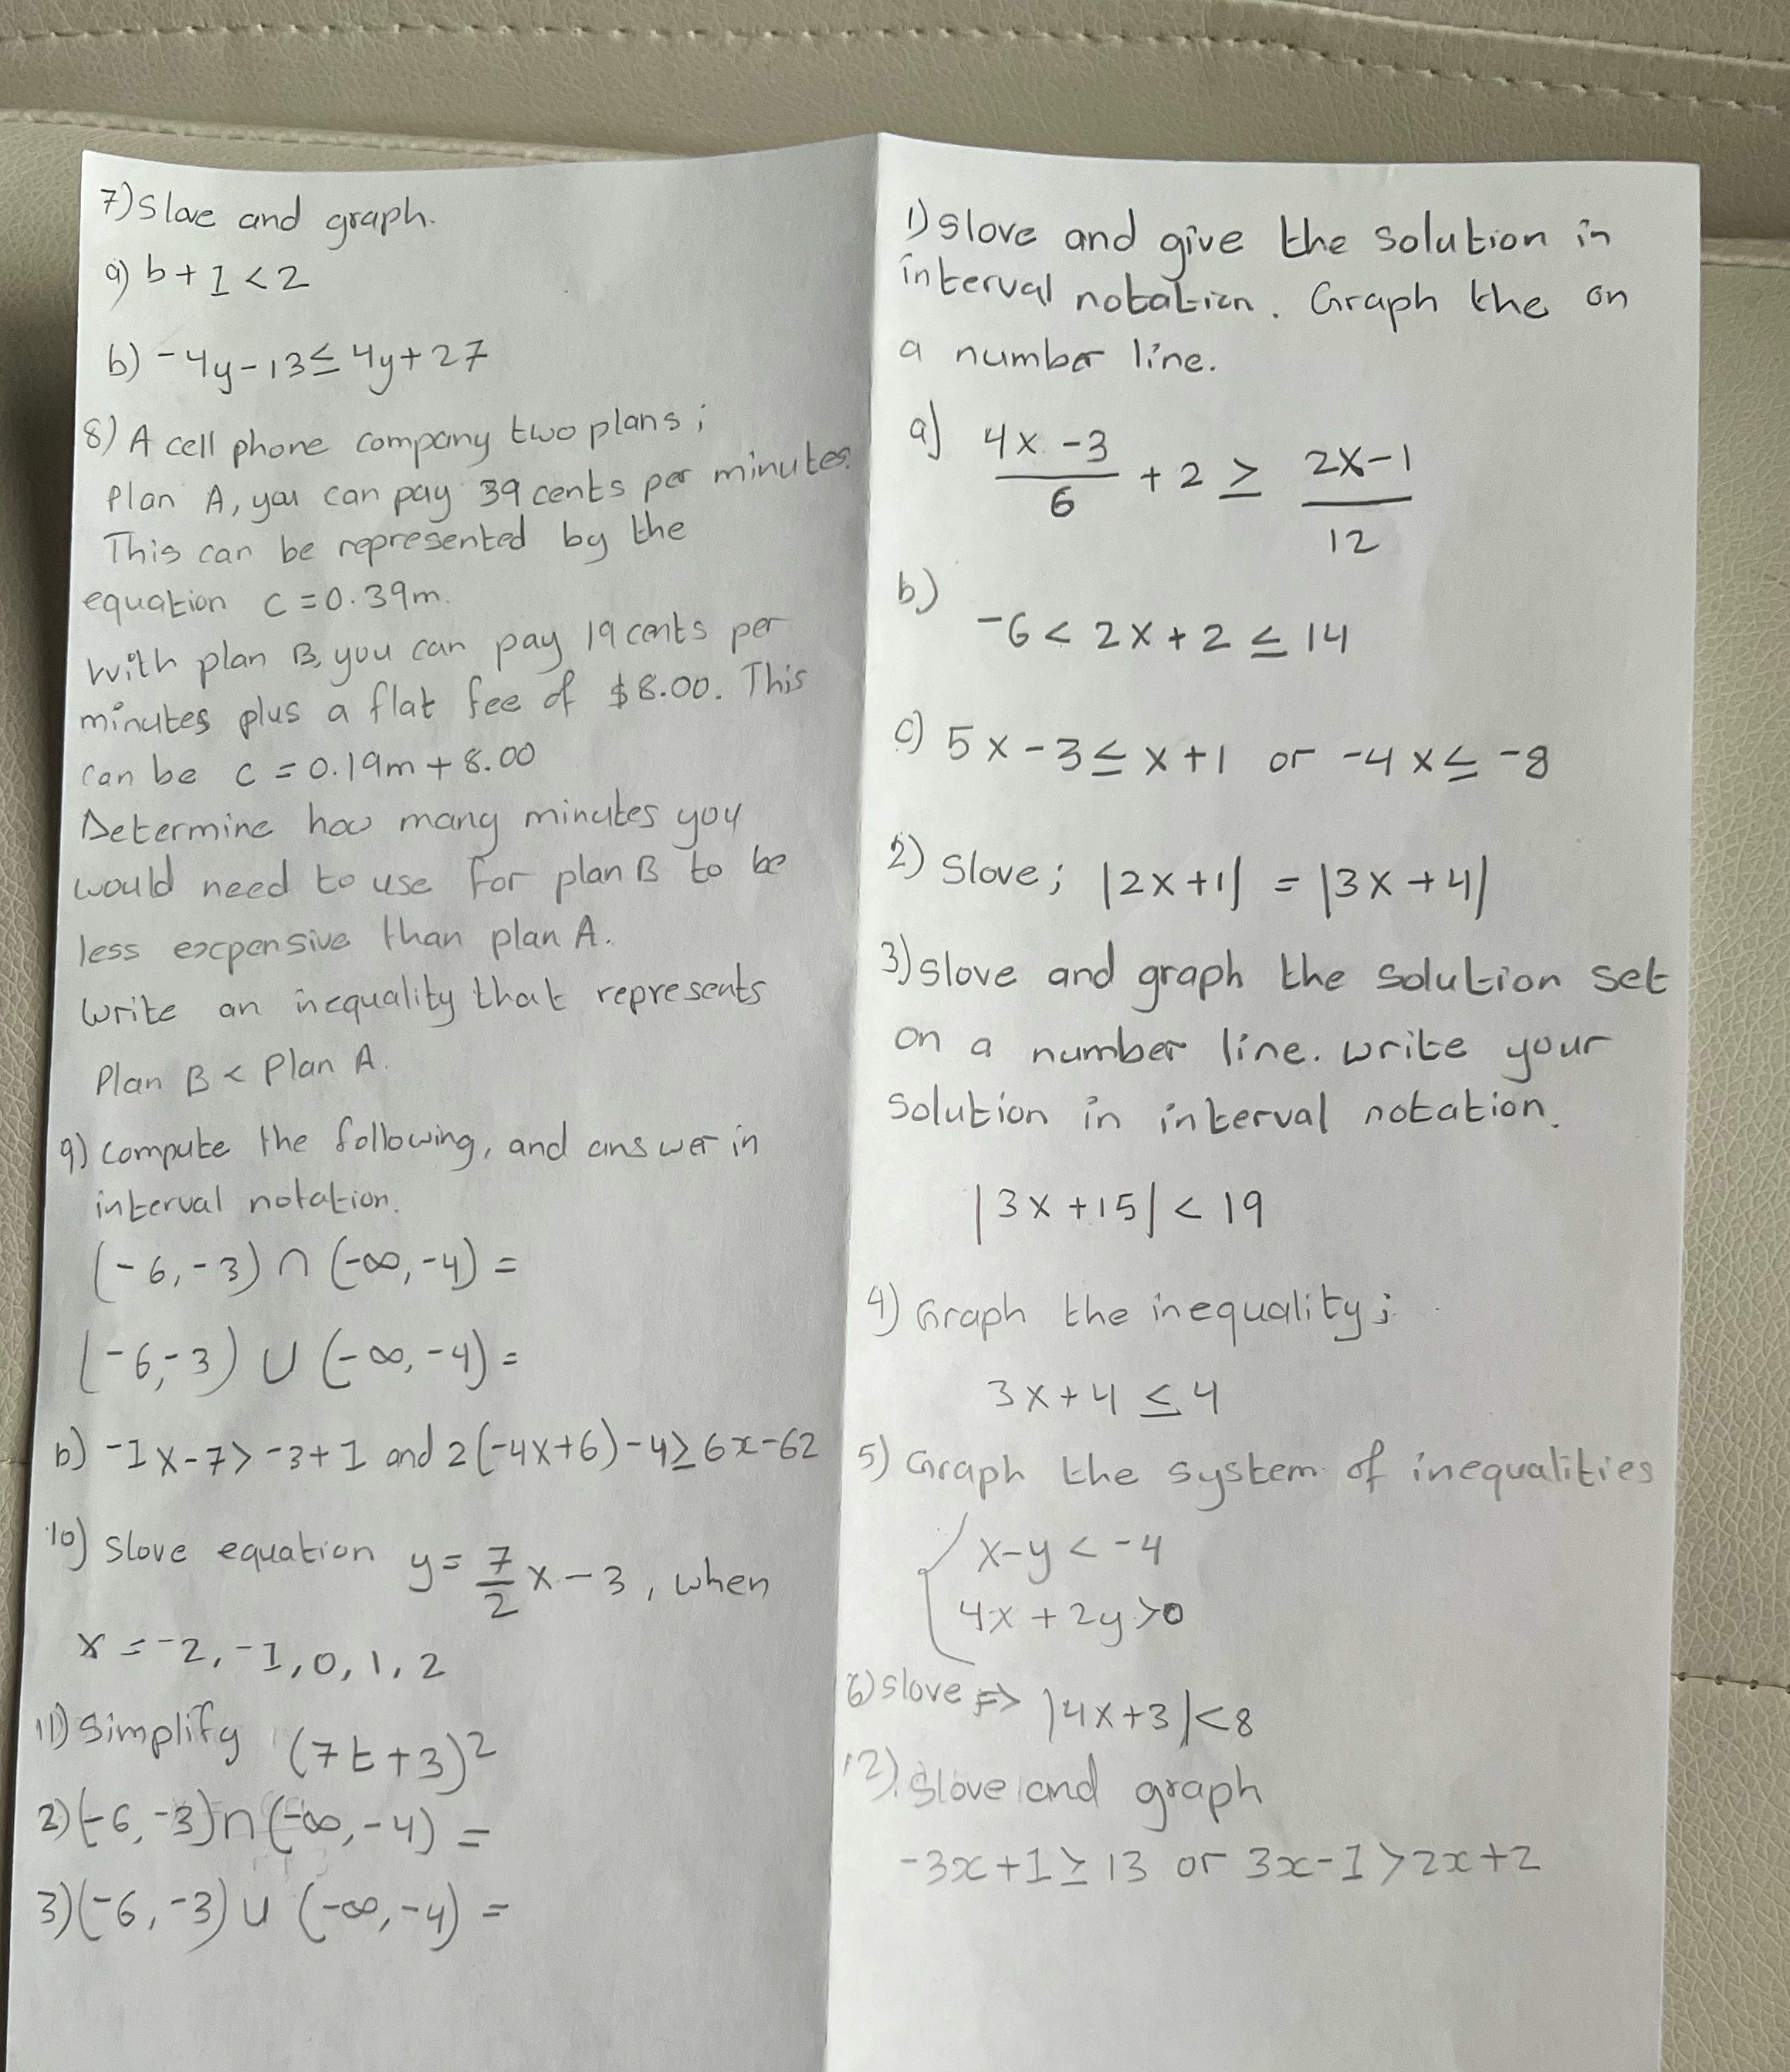 7) Slove and graph.
a) b + 1 < 2
b) -4y - 13 ≤ 4y + 27
8) A cell phone company two plans;
Plan A, you can pay 39 cents per minutes.
This can be represented by the
equation c = 0.39m.
With plan B, you can pay 19 cents per
minutes plus a flat fee of $8.00. This
can be c = 0.19m + 8.00
Determine how many minutes you
would need to use for plan B to be
less expensive than plan A.
Write an inequality that represents
Plan B < Plan A.
9) Compute the following, and answer in
interval notation.
(-6, -3) ∩ (-∞, -4) =
(-6, -3) ∪ (-∞, -4) =
b) -1x - 7 > -3 + 1 and 2(-4x + 6) - 4 ≥ 6x - 62
10) Slove equation y = 7/2 x - 3, when
x = -2, -1, 0, 1, 2
11) Simplify (7t + 3)²
2) (-6, -3) ∩ (-∞, -4) =
3) (-6, -3) ∪ (-∞, -4) =
1) Slove and give the solution in
interval notation. Graph the on
a number line.
a) (4x - 3)/6 + 2 ≥ (2x - 1)/12
b) -6 < 2x + 2 ≤ 14
c) 5x - 3 ≤ x + 1 or -4x ≤ -8
2) Slove; |2x + 1| = |3x + 4|
3) Slove and graph the solution set
on a number line. Write your
solution in interval notation.
|3x + 15| < 19
4) Graph the inequality;
3x + 4 ≤ 4
5) Graph the system of inequalities
{ x - y < -4
4x + 2y > 0
6) Slove => |4x + 3| < 8
12) Slove and graph
-3x + 1 ≥ 13 or 3x - 1 > 2x + 2